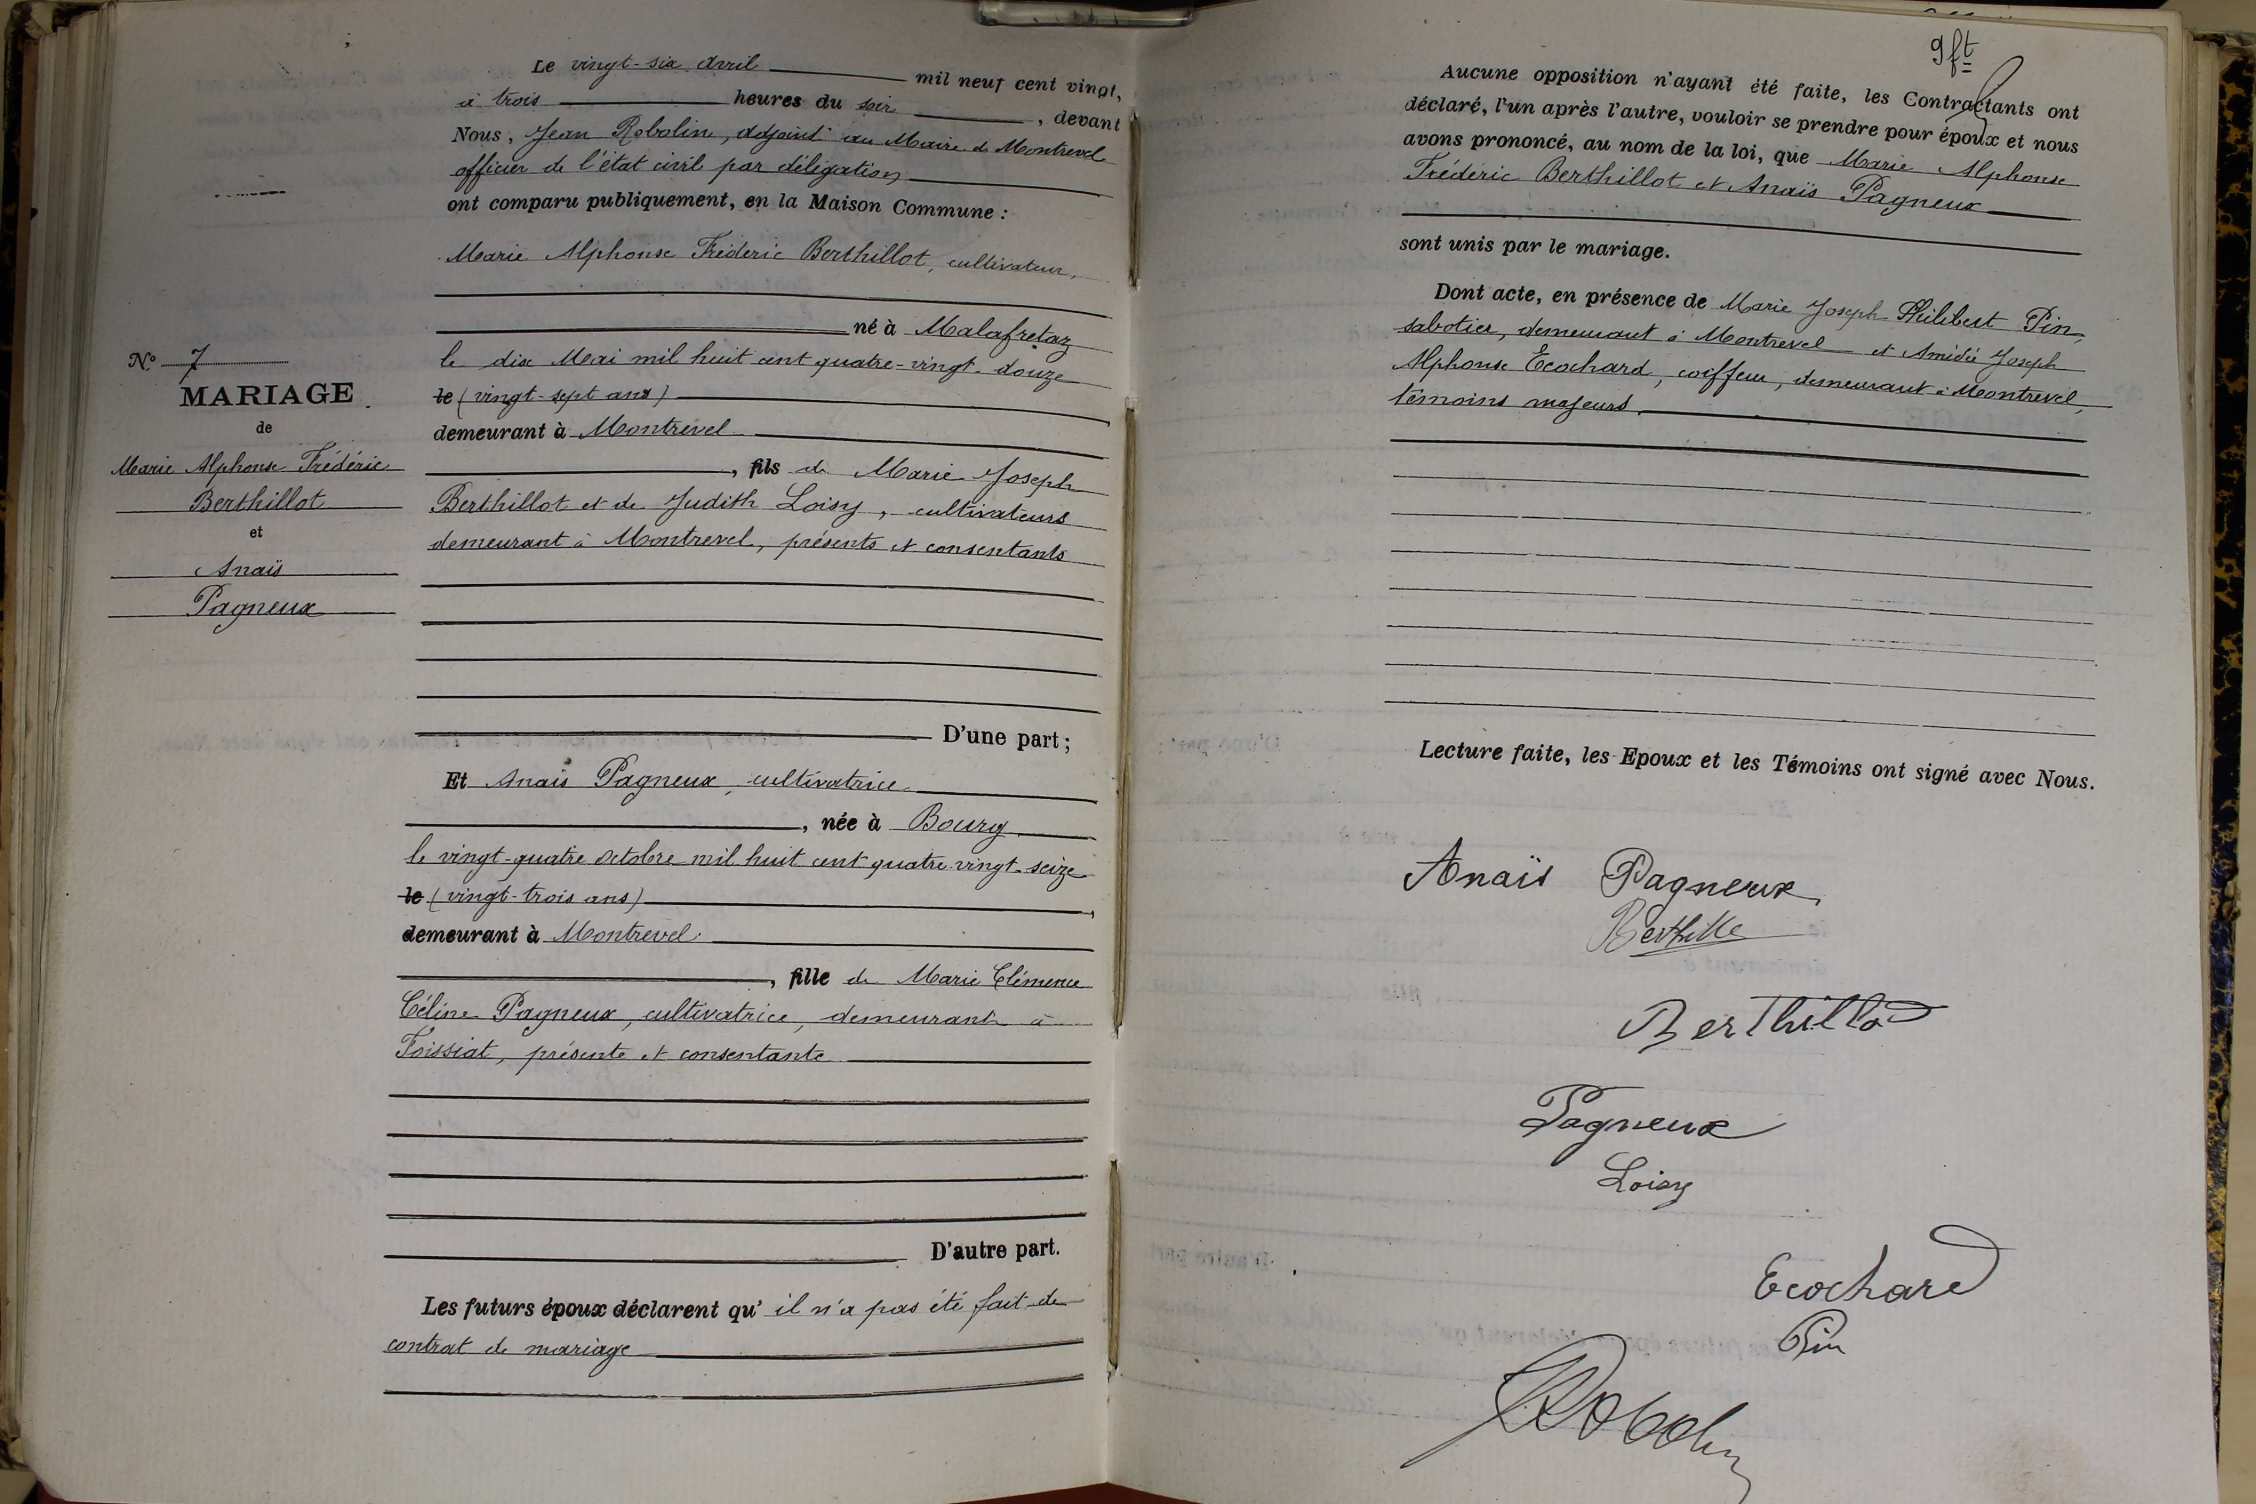 Le vingt-six Avril mil neuf cent vingt,
à trois heures du soir, devant
Nous, Jean Robolin, adjoint au Maire de Montrevel
officier de l'état civil par délégation
ont comparu publiquement, en la Maison Commune :
Marie Alphonse Frédéric Berthillot, cultivateur,
né à Malafretaz
le dix Mai mil huit cent quatre-vingt-douze
le (vingt-sept ans)
demeurant à Montrevel
, fils de Marie Joseph
Berthillot et de Judith Loisy, cultivateurs
demeurant à Montrevel, présents et consentants
D'une part ;
Et Anaïs Pagneux, cultivatrice
, née à Bourg
le vingt-quatre octobre mil huit cent quatre-vingt-seize
le (vingt-trois ans)
demeurant à Montrevel
, fille de Marie Clémence
Céline Pagneux, cultivatrice, demeurant à
Foissiat, présente et consentante
D'autre part.
Les futurs époux déclarent qu' il n'a pas été fait de
contrat de mariage
N° 7
MARIAGE
de
Marie Alphonse Frédéric
Berthillot
et
Anaïs
Pagneux
9 ft
Aucune opposition n'ayant été faite, les Contractants ont
déclaré, l'un après l'autre, vouloir se prendre pour époux et nous
avons prononcé, au nom de la loi, que Marie Alphonse
Frédéric Berthillot et Anaïs Pagneux
sont unis par le mariage.
Dont acte, en présence de Marie Joseph Philibert Pin,
sabotier, demeurant à Montrevel et Amédée Joseph
Alphonse Ecochard, coiffeur, demeurant à Montrevel,
témoins majeurs.
Lecture faite, les Epoux et les Témoins ont signé avec Nous.
Anaïs Pagneux
Berthillo
Pagneux
Loisy
Ecochard
Pin
Robolin